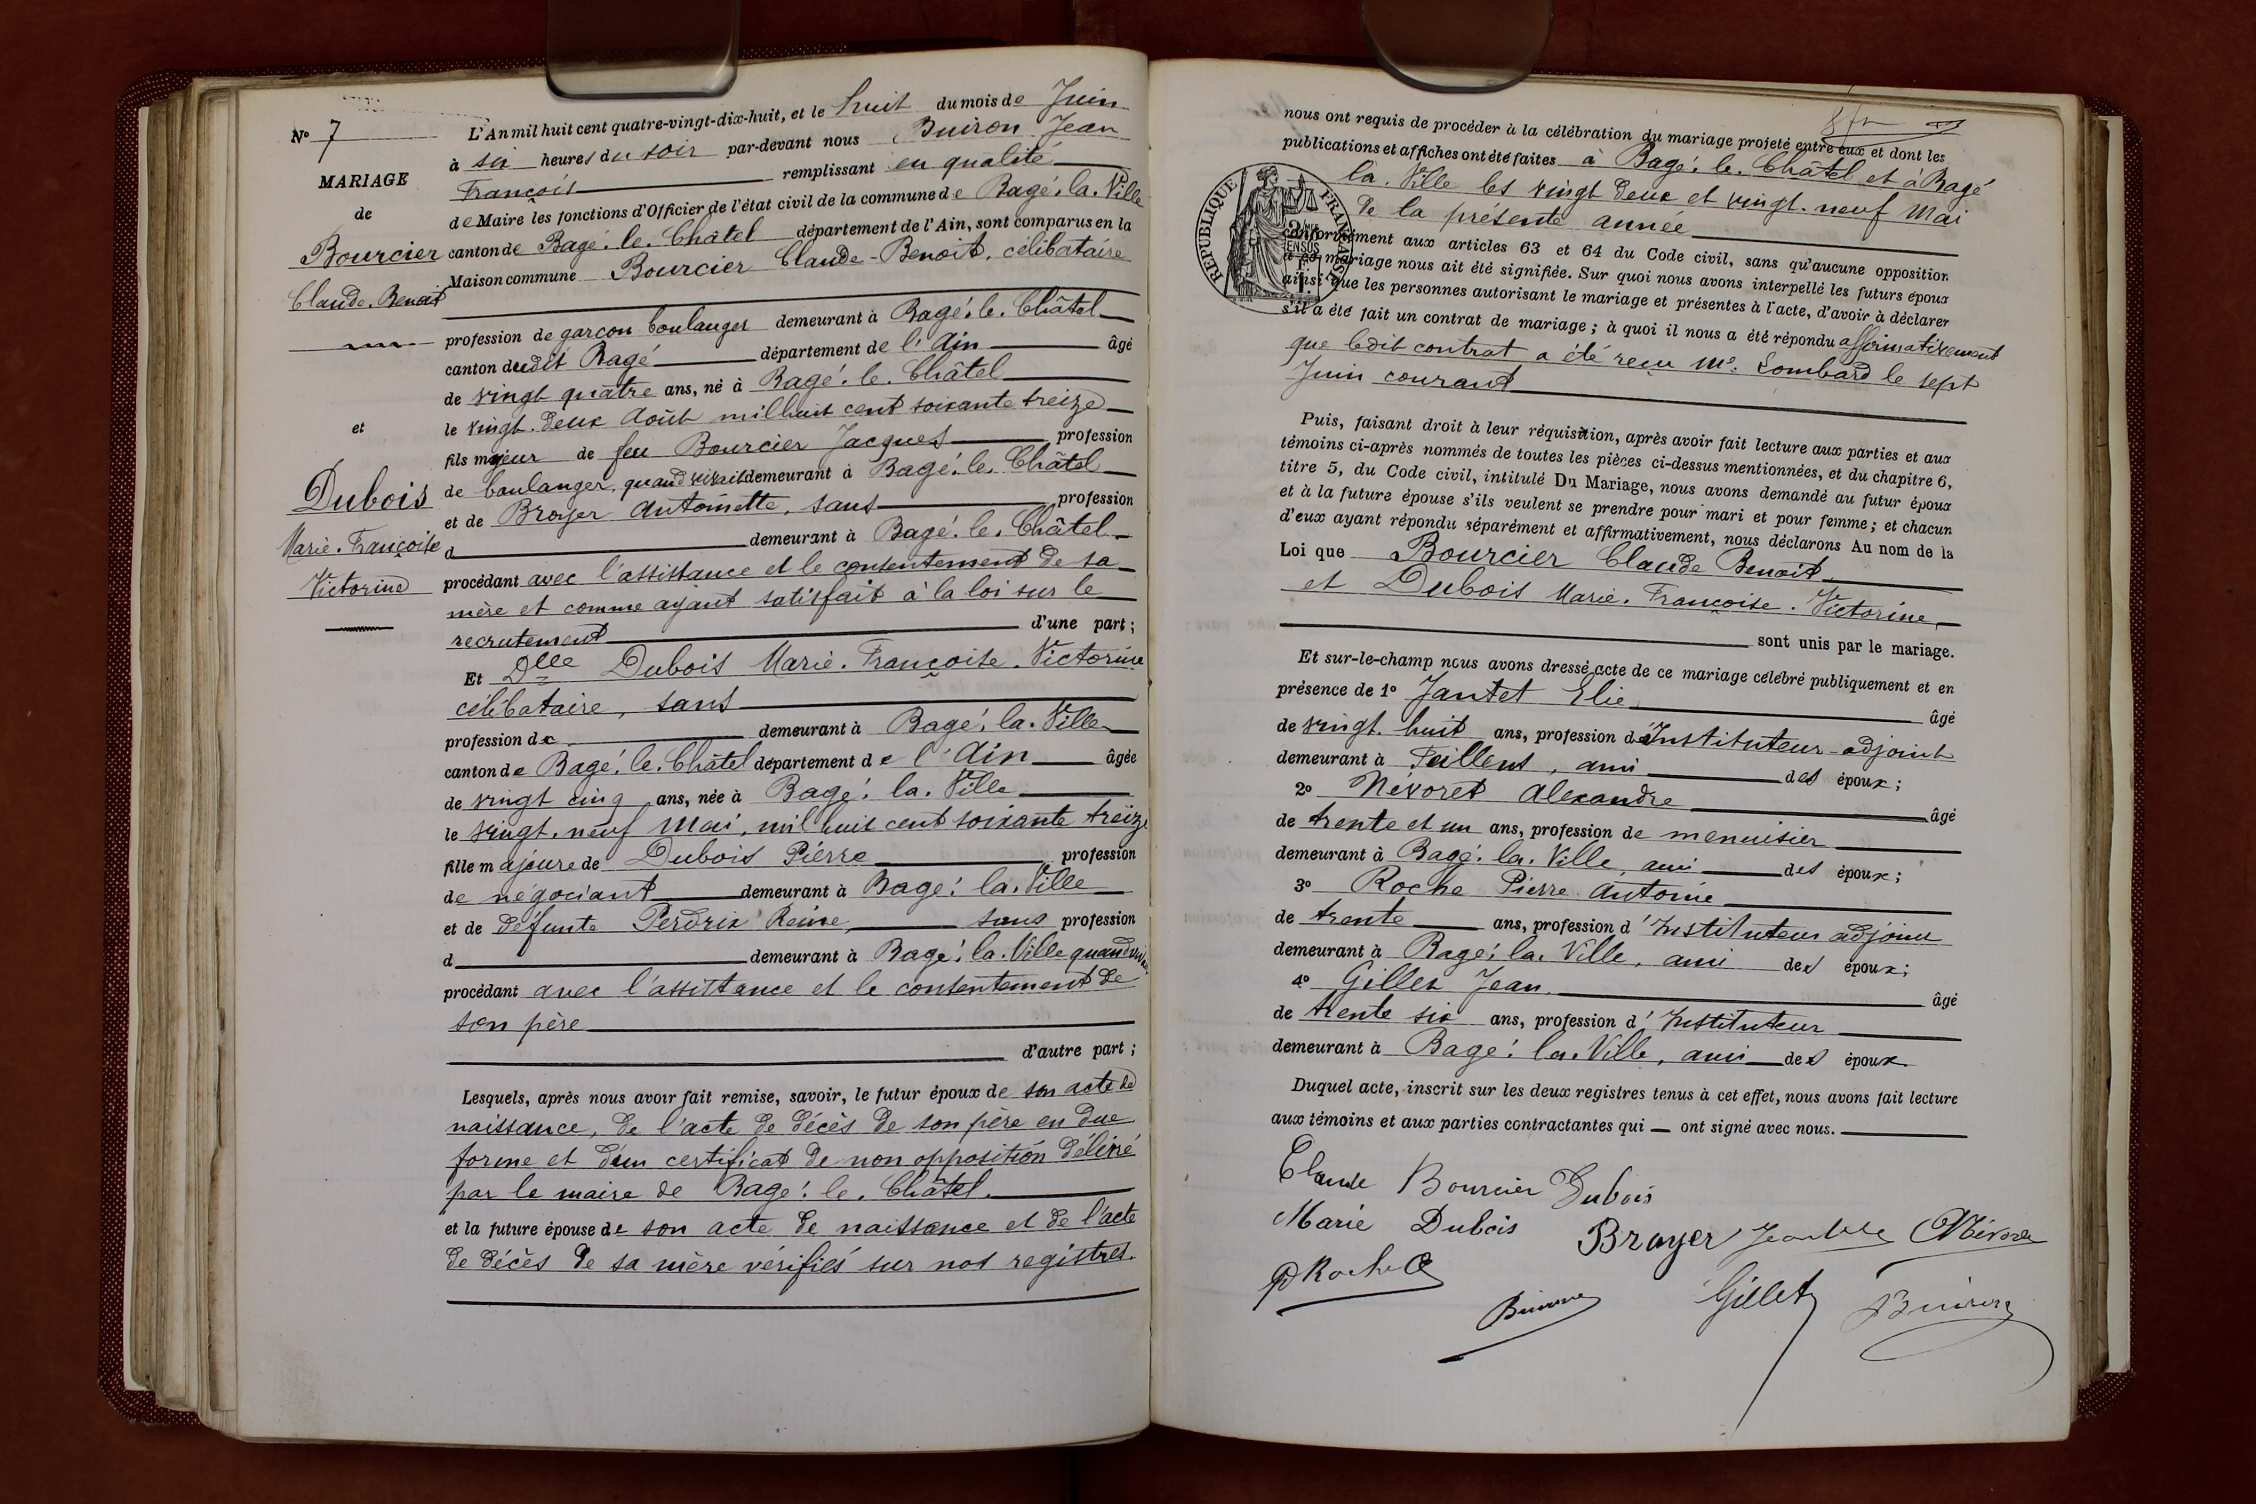 N° 7
MARIAGE
de
Bourcier
Claude-Benoit
et
Dubois
Marie-Françoise
Victorine
L'An mil huit cent quatre-vingt-dix-huit, et le huit du mois de Juin
à six heures du soir par-devant nous Buiron Jean
François remplissant en qualité
de Maire les fonctions d'Officier de l'état civil de la commune de Bagé-la-Ville
canton de Bagé-le-Châtel département de l'Ain, sont comparus en la
Maison commune Bourcier Claude-Benoit, célibataire
profession de garçon boulanger demeurant à Bagé-le-Châtel
canton dudit Bagé département de l'Ain âgé
de vingt quatre ans, né à Bagé-le-Châtel
le vingt-deux Août mil huit cent soixante treize
fils majeur de feu Bourcier Jacques profession
de boulanger, quand vivait demeurant à Bagé-le-Châtel
et de Broyer Antoinette, sans profession
d demeurant à Bagé-le-Châtel
procédant avec l'assistance et le consentement de sa
mère et comme ayant satisfait à la loi sur le
recrutement d'une part;
Et Dlle Dubois Marie-Françoise-Victorine
célibataire, sans
profession de demeurant à Bagé-la-Ville
canton de Bagé-le-Châtel département de l'Ain âgée
de vingt cinq ans, née à Bagé-la-Ville
le vingt-neuf Mai, mil huit cent soixante treize
fille majeure de Dubois Pierre profession
de négociant demeurant à Bagé-la-Ville
et de défunte Perdrix Reine, sans profession
d demeurant à Bagé-la-Ville quand vivait
procédant avec l'assistance et le consentement de
son père
d'autre part;
Lesquels, après nous avoir fait remise, savoir, le futur époux de son acte de
naissance, de l'acte de décès de son père en due
forme et d'un certificat de non opposition délivré
par le maire de Bagé-le-Châtel.
et la future épouse de son acte de naissance et de l'acte
de décès de sa mère vérifiés sur nos registres.
nous ont requis de procéder à la célébration du mariage projeté entre eux et dont les
publications et affiches ont été faites à Bagé-le-Châtel et à Bagé
la-Ville les vingt deux et vingt-neuf Mai
de la présente année
RÉPUBLIQUE FRANÇAISE
conformément aux articles 63 et 64 du Code civil, sans qu'aucune opposition
à ce mariage nous ait été signifiée. Sur quoi nous avons interpellé les futurs époux
ainsi que les personnes autorisant le mariage et présentes à l'acte, d'avoir à déclarer
s'il a été fait un contrat de mariage; à quoi il nous a été répondu affirmativement
que ledit contrat a été reçu Me. Lombard le sept
Juin courant
Puis, faisant droit à leur réquisition, après avoir fait lecture aux parties et aux
témoins ci-après nommés de toutes les pièces ci-dessus mentionnées, et du chapitre 6,
titre 5, du Code civil, intitulé Du Mariage, nous avons demandé au futur époux
et à la future épouse s'ils veulent se prendre pour mari et pour femme; et chacun
d'eux ayant répondu séparément et affirmativement, nous déclarons Au nom de la
Loi que Bourcier Claude Benoit
et Dubois Marie-Françoise-Victorine
sont unis par le mariage.
Et sur-le-champ nous avons dressé acte de ce mariage célébré publiquement et en
présence de 1° Jantet Elie âgé
de vingt-huit ans, profession d'Instituteur-adjoint
demeurant à Feillens, ami des époux;
2° Névoret Alexandre âgé
de trente et un ans, profession de menuisier
demeurant à Bagé-la-Ville, ami des époux;
3° Roche Pierre Antoine
de trente ans, profession d'Instituteur adjoint
demeurant à Bagé-la-Ville, ami des époux;
4° Gillet Jean âgé
de trente six ans, profession d'Instituteur
demeurant à Bagé-la-Ville, ami des époux
Duquel acte, inscrit sur les deux registres tenus à cet effet, nous avons fait lecture
aux témoins et aux parties contractantes qui ont signé avec nous.
Claude Bourcier Dubois
Marie Dubois Broyer Névoret
Roche
Gillet Buiron